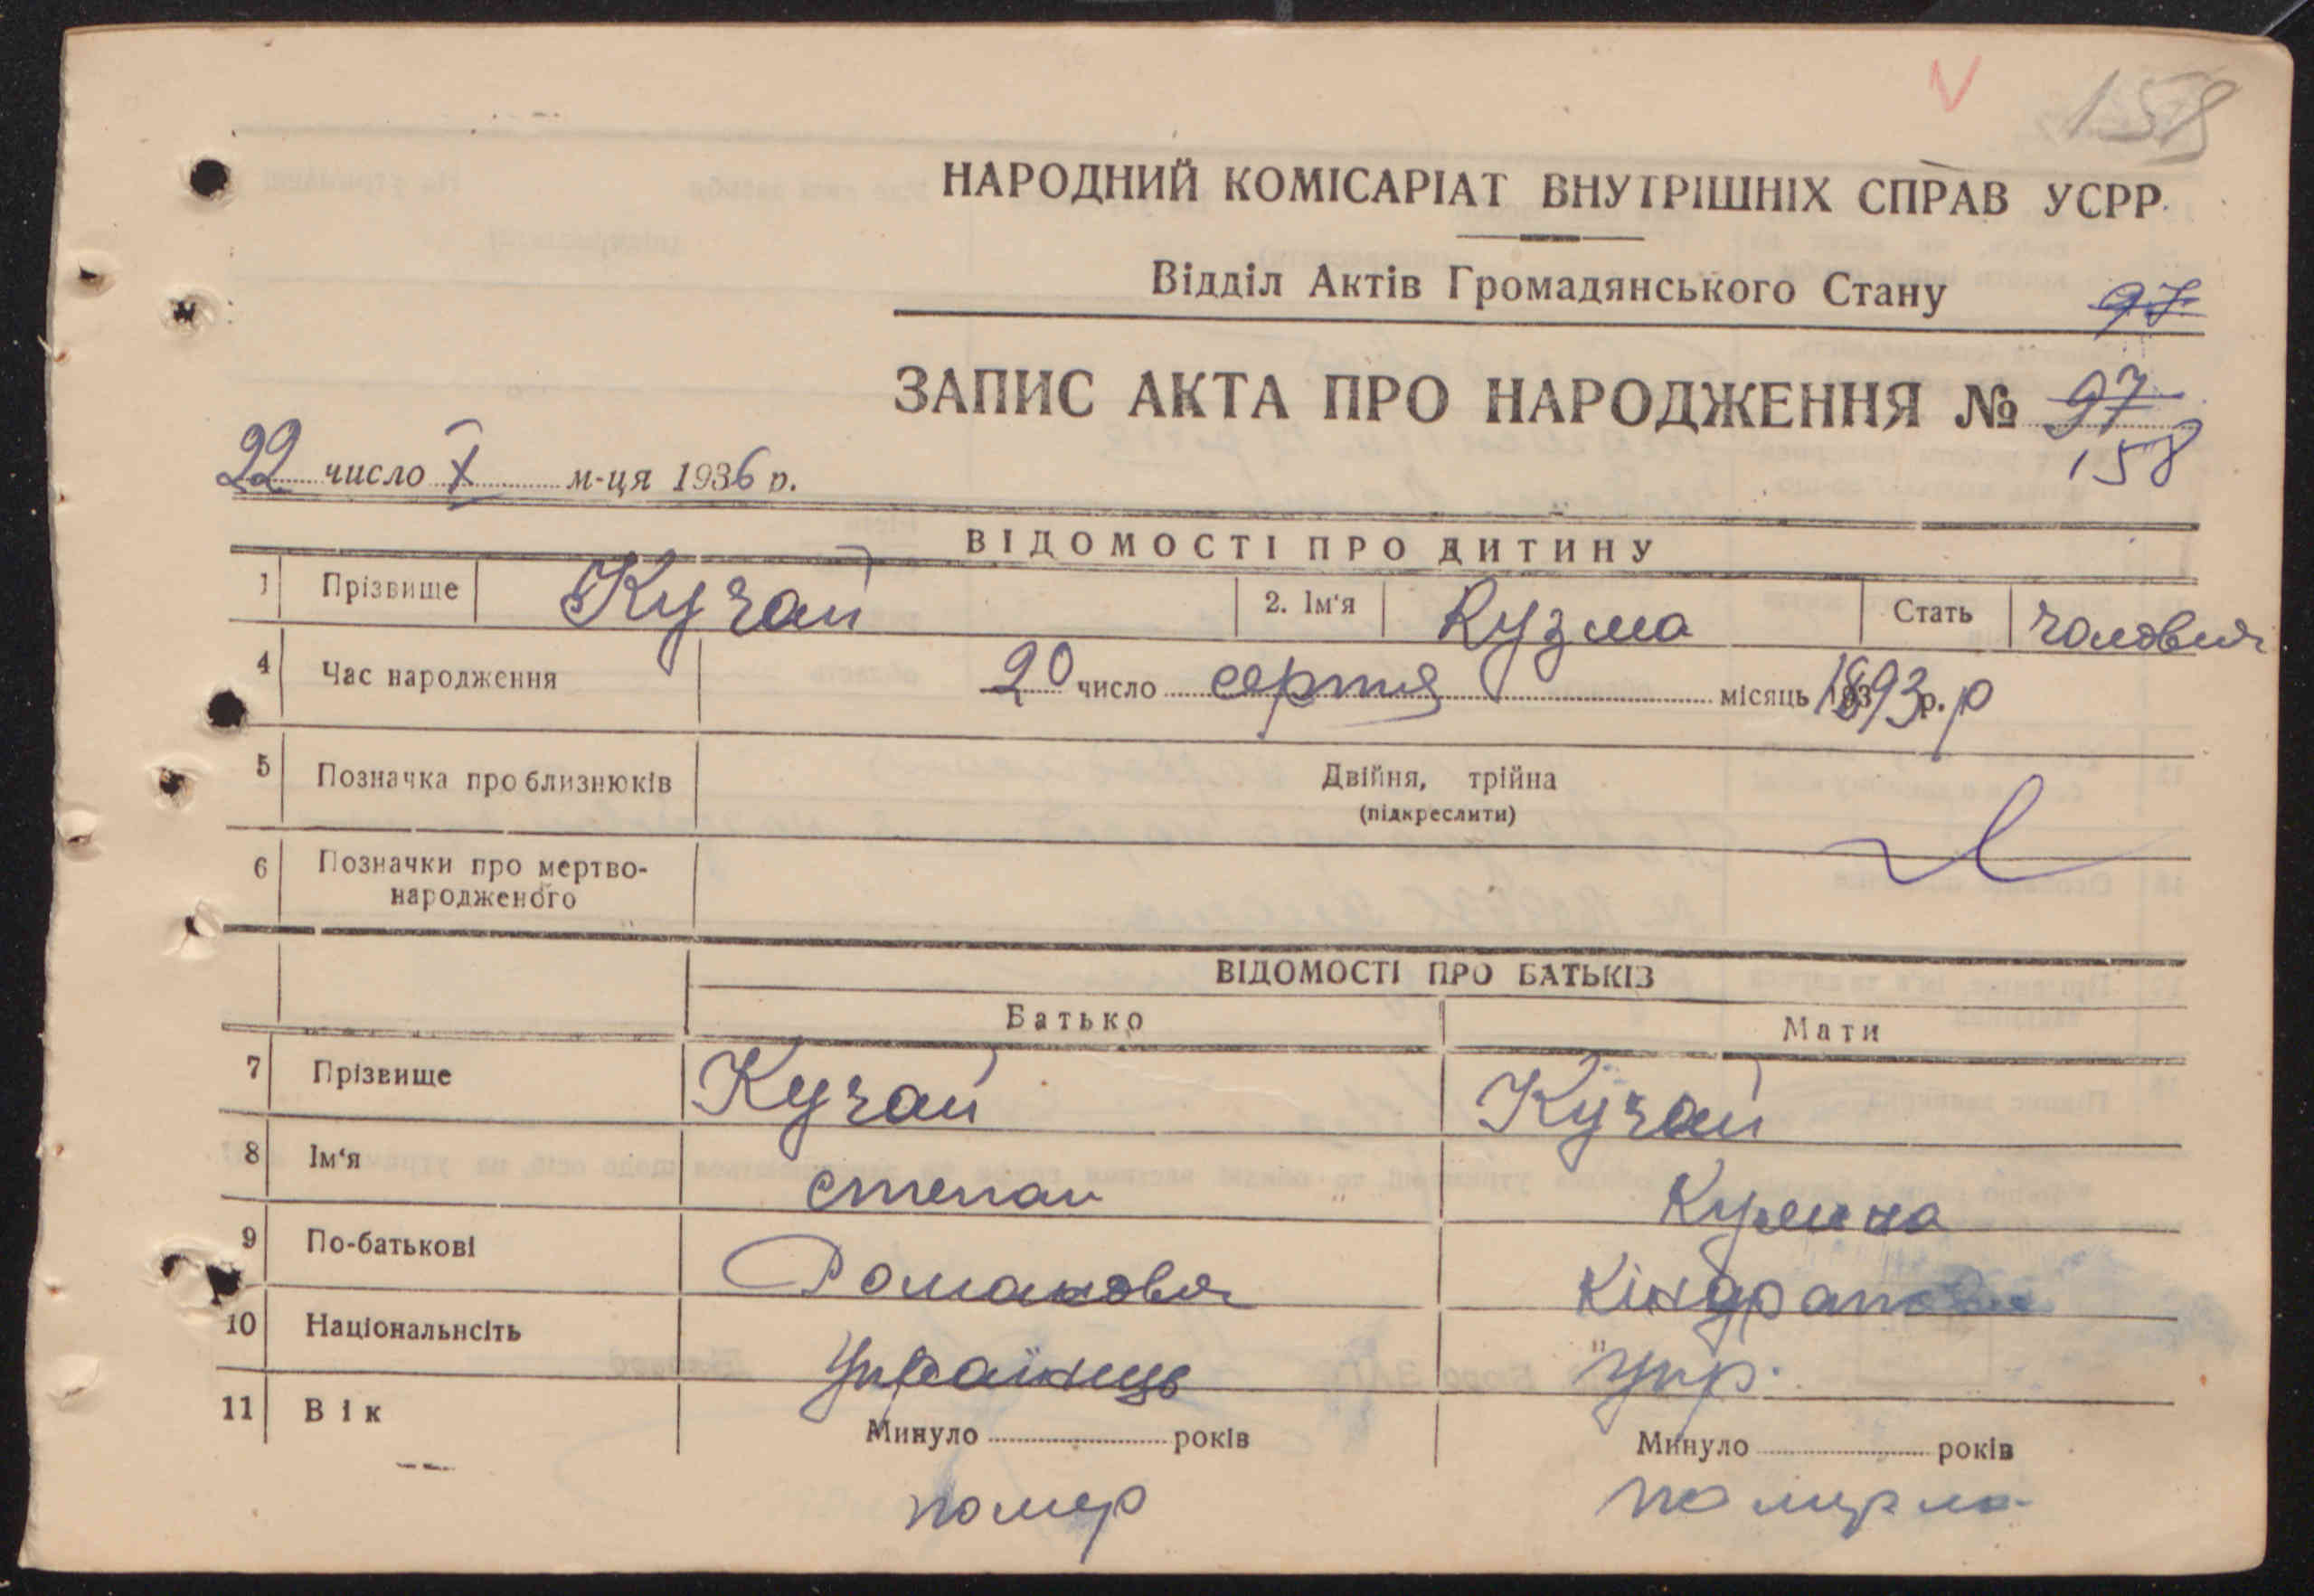 158
НАРОДНИЙ КОМІСАРІАТ ВНУТРІШНІХ СПРАВ УСРР
Відділ Актів Громадянського Стану
97
ЗАПИС АКТА ПРО НАРОДЖЕННЯ № 97
158
22 число X м-ця 1936 р.
ВІДОМОСТІ ПРО ДИТИНУ
1 Прізвище Кучай 2. Ім'я Кузма Стать
4 Час народження 20 число серпня місяць 1893 р. р
5 Позначка про близнюків Двійня, трійна
(підкреслити)
6 Позначки про мертво-
народженого
ВІДОМОСТІ ПРО БАТЬКІВ
Батько Мати
7 Прізвище Кучай Кучай
8 Ім'я степан
9 По-батькові Романович
10 Національнсіть Українець Укр.
11 Вік Минуло років Минуло років
помер померла